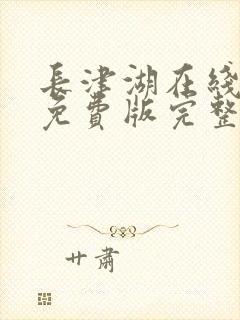 長津湖在綫
免費版完整
廿肅